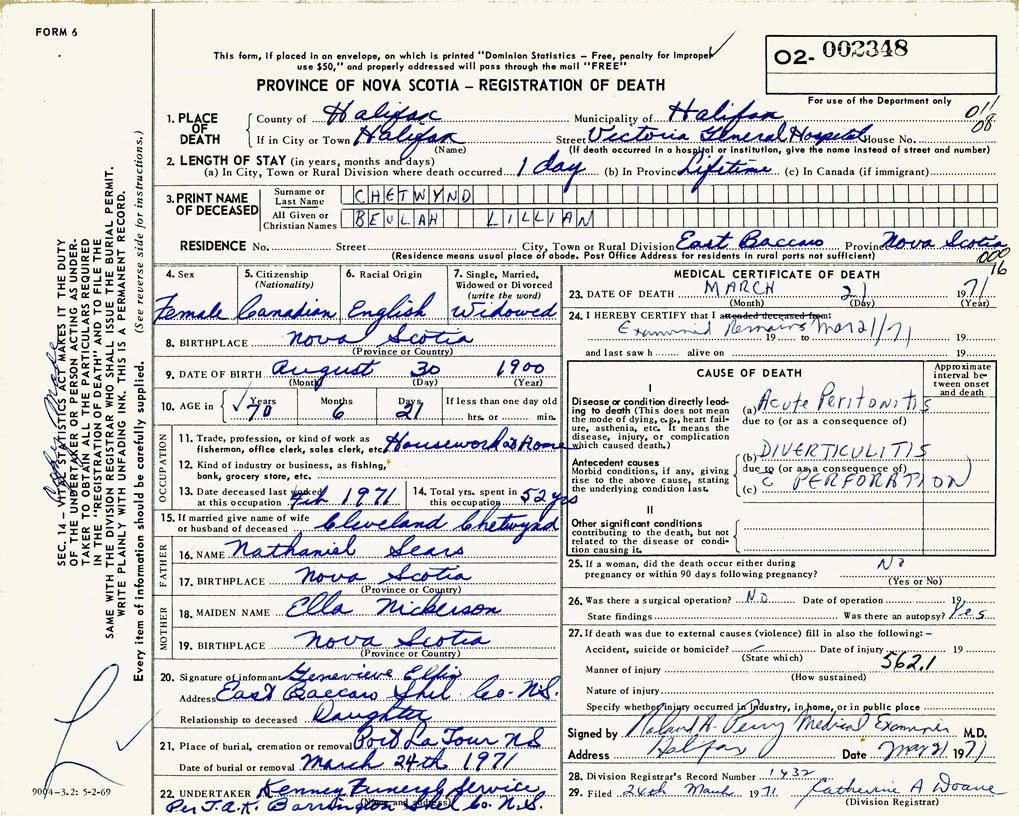 FORM 6
This form, if placed in an envelope, on which is printed "Dominion Statistics – Free, penalty for improper
use $50," and properly addressed will pass through the mail "FREE"
O2- 002348
For use of the Department only
PROVINCE OF NOVA SCOTIA – REGISTRATION OF DEATH
011
08
1. PLACE OF DEATH
County of Halifax Municipality of Halifax
If in City or Town Halifax Street Victoria General Hospital House No.
(Name) (If death occurred in a hospital or institution, give the name instead of street and number)
2. LENGTH OF STAY (in years, months and days)
(a) In City, Town or Rural Division where death occurred 1 day (b) In Province Lifetime (c) In Canada (if immigrant)
3. PRINT NAME OF DECEASED
Surname or Last Name CHETWYND
All Given or Christian Names BEULAH LILLIAN
RESIDENCE No. Street City, Town or Rural Division East Baccaro Province Nova Scotia
(Residence means usual place of abode. Post Office Address for residents in rural parts not sufficient)
000
16
4. Sex Female
5. Citizenship (Nationality) Canadian
6. Racial Origin English
7. Single, Married, Widowed or Divorced (write the word) Widowed
8. BIRTHPLACE Nova Scotia
(Province or Country)
9. DATE OF BIRTH August 30 1900
(Month) (Day) (Year)
10. AGE in Years 70 Months 6 Days 21 If less than one day old
hrs. or min.
OCCUPATION
11. Trade, profession, or kind of work as
fisherman, office clerk, sales clerk, etc. Housework at Home
12. Kind of industry or business, as fishing,
bank, grocery store, etc.
13. Date deceased last worked at this occupation Feb 1971
14. Total yrs. spent in this occupation 52 yrs
15. If married give name of wife or husband of deceased Cleveland Chetwynd
FATHER
16. NAME Nathaniel Sears
17. BIRTHPLACE Nova Scotia
(Province or Country)
MOTHER
18. MAIDEN NAME Ella Nickerson
19. BIRTHPLACE Nova Scotia
(Province or Country)
20. Signature of informant Genevieve
Address East Baccaro Shel Co. N.S.
Relationship to deceased Daughter
21. Place of burial, cremation or removal Port La Tour NS
Date of burial or removal March 24th 1971
22. UNDERTAKER Kenney Funeral Service
(Name and address)
Per J.A.K. Barrington Shel Co. N.S.
MEDICAL CERTIFICATE OF DEATH
23. DATE OF DEATH MARCH 21 1971
(Month) (Day) (Year)
24. I HEREBY CERTIFY that I attended deceased from:
Examined Remains Mar 21/71
19 to 19
and last saw h alive on 19
CAUSE OF DEATH
Approximate interval between onset and death
I
Disease or condition directly leading to death (This does not mean the mode of dying, e.g., heart failure, asthenia, etc. It means the disease, injury, or complication which caused death.)
(a) Acute Peritonitis
due to (or as a consequence of)
Antecedent causes
Morbid conditions, if any, giving rise to the above cause, stating the underlying condition last.
(b) DIVERTICULITIS
due to (or as a consequence of)
(c) C PERFORATION
II
Other significant conditions
contributing to the death, but not related to the disease or condition causing it.
25. If a woman, did the death occur either during
pregnancy or within 90 days following pregnancy? No
(Yes or No)
26. Was there a surgical operation? NO Date of operation 19
State findings Was there an autopsy? Yes
27. If death was due to external causes (violence) fill in also the following: –
Accident, suicide or homicide? Date of injury 19
(State which)
562.1
Manner of injury
(How sustained)
Nature of injury
Specify whether injury occurred in industry, in home, or in public place
Signed by Roland A. Perry Medical Examiner M.D.
Address Halifax Date Mar 21 1971
28. Division Registrar's Record Number 1432
29. Filed 24th March 1971 Catherine A Doane
(Division Registrar)
SEC. 14 – VITAL STATISTICS ACT MAKES IT THE DUTY
OF THE UNDERTAKER OR PERSON ACTING AS UNDER-
TAKER TO OBTAIN ALL THE PARTICULARS REQUIRED
IN THE "REGISTRATION OF DEATH" AND TO FILE THE
SAME WITH THE DIVISION REGISTRAR WHO SHALL ISSUE THE BURIAL PERMIT.
WRITE PLAINLY WITH UNFADING INK. THIS IS A PERMANENT RECORD.
Every item of information should be carefully supplied. (See reverse side for instructions.)
9004-3.2: 5-2-69